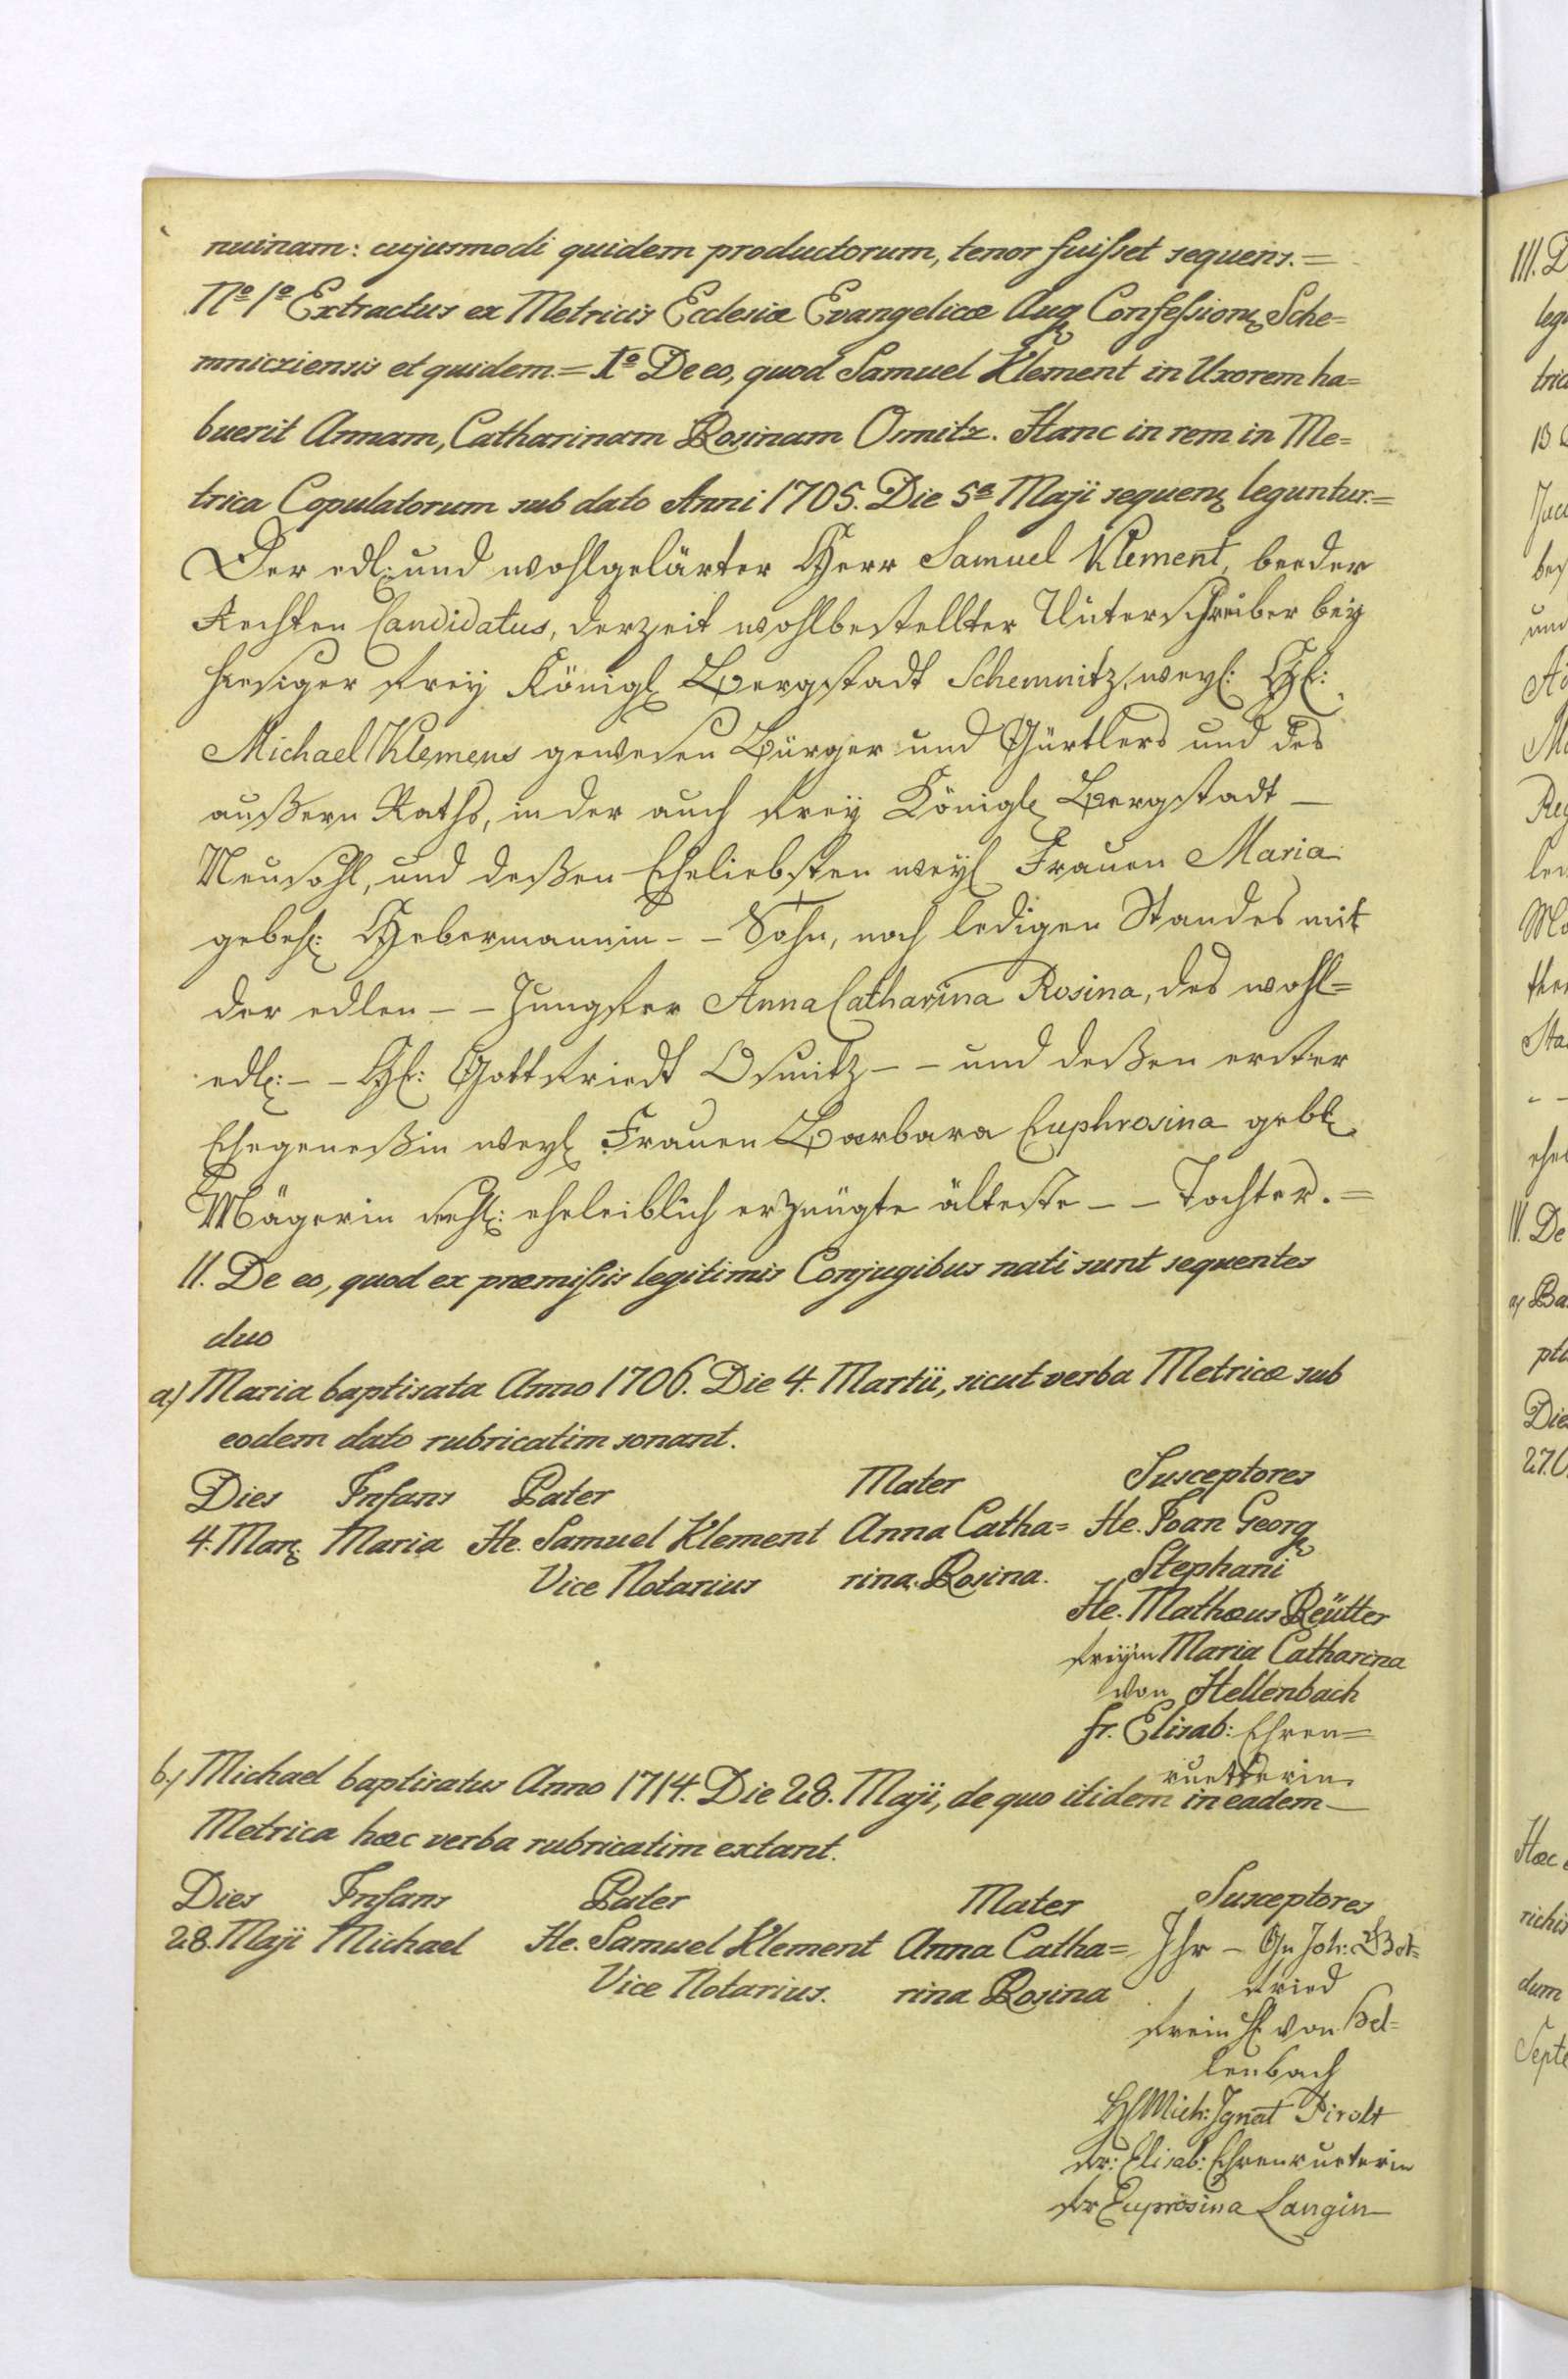 nuinam: cujusmodi quidem productorum, tenor fuisset sequens.=
No 1o Extractus ex Metricis Ecclesiæ Evangelicæ Aug Confession Sche=
mnicziensis et quidem.= 1o De eo, quod Samuel Klement in Uxorem ha=
buerit Annam, Catharinam Rosinam Osnitz. Hanc in rem in Me=
trica Copulatorum sub dato Anni 1705. Die 5a Maji sequen leguntur.=
Der edl: und wohlgelärter Herr Samuel Klement, beeder
Rechten Candidatus, derzeit wohlbestellter Unterschreiber bey
hiesiger frey Königl Bergstadt Schemnitz, weyl: H:
Michael Klemens gewesen Bürger und Gürtlers und des
außern Raths, in der auch frey Königl Bergstadt –
Neusohl, und deßen Eheliebsten weyl Frauen Maria
gebohr: Hebermannin – – Sohn, noch ledigen Standes mit
der edlen – – Jungfer Anna Catharina Rosina, des wohl=
edl: – – H: Gottfriedt Osnitz – – und deßen erster
Ehegeneßin weyl Frauen Barbara Euphrosina gebl
Mägerin eheleiblich erzeugte älteste – – Tochter.=
II. De eo, quod ex præmissis legitimis Conjugibus nati sunt sequentes
duo
a) Maria baptisata Anno 1706. Die 4. Martii, sicut verba Metricæ sub
eodem dato rubricatim sonant.
Dies Infans Pater Mater Susceptores
4. Mar Maria He. Samuel Klement Anna Catha= He. Joan Georg
Vice Notarius rina Rosina. Stephani
He. Mathæus Reütter
freyin Maria Catharina
von Hellenbach
fr. Elisab: Ehren=
ruetterin.
b.) Michael baptisatus Anno 1714. Die 28. Maji, de quo itidem in eadem –
Metrica hæc verba rubricatim extant.
Dies Infans Pater Mater Susceptores
28. Maji Michael He. Samuel Klement Anna Catha= Ihr – Gn Joh: Got=
Vice Notarius. rina Rosina fried
frein H von Hel=
lenbach
H Mich: Ignat Pirolt
fr: Elisab: Ehrenrueterin
fr Euprosina Langin